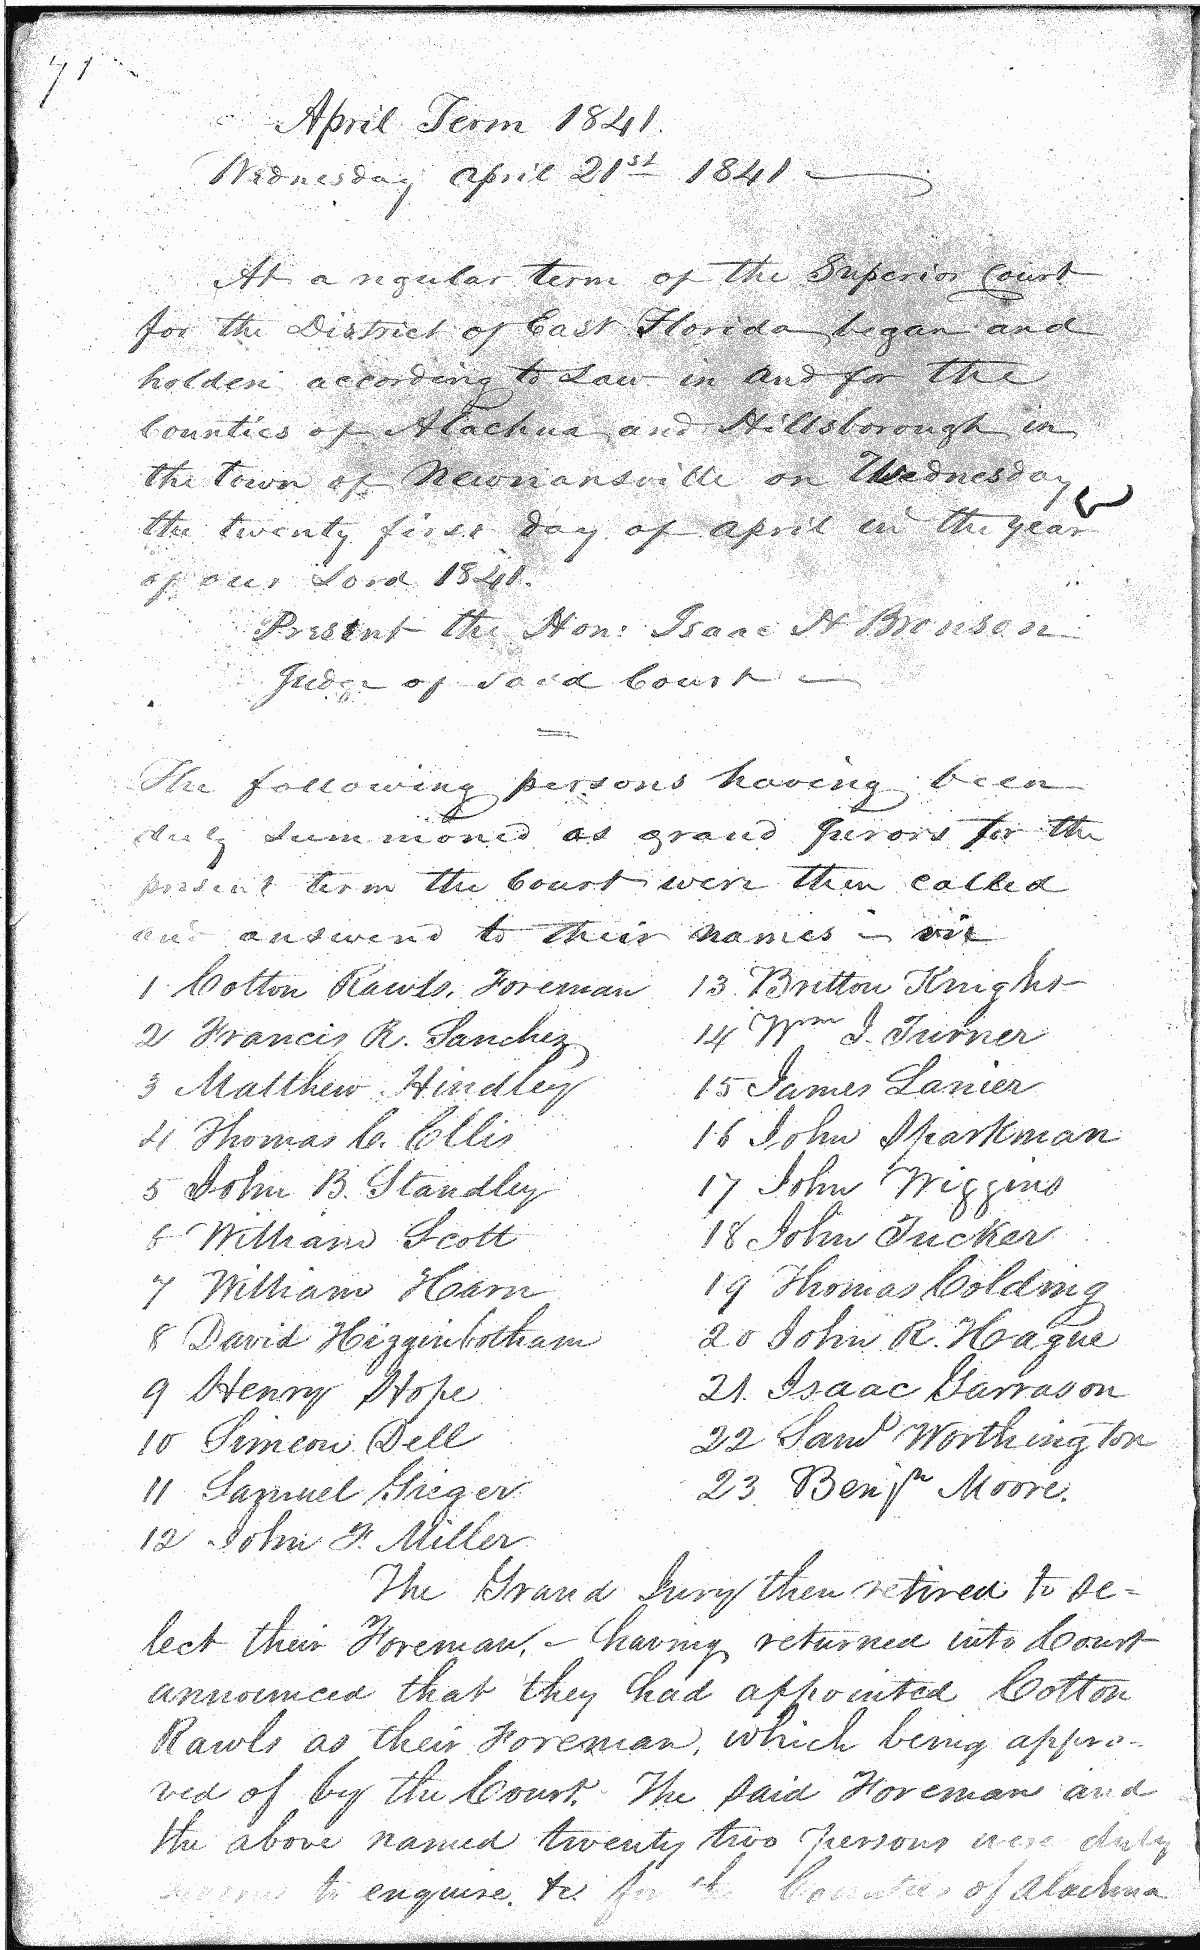 71
April Term 1841.
Wednesday april 21st 1841
At a regular term of the Superior Court
for the District of East Florida began and
holden according to Law in and for the
Counties of Alachua and Hillsborough in
the town of Newnansville on Wednesday
the twenty first day of april in the year
of our Lord 1841.
Present the Hon: Isaac H Bronson
Judge of said Court —
The following persons having been
duly summoned as grand Jurors for the
present term the Court were then called
and answered to their names — viz
1 Cotton Rawls. Foreman
2 Francis R. Sanchez
3 Matthew Hindley
4 Thomas C. Ellis
5 John B. Standley
6 William Scott
7 William Harn
8 David Higginbotham
9 Henry Hope
10 Simeon Dell
11 Samuel Gieger
12 John F. Miller
13 Britton Knight
14 Wm J. Turner
15 James Lanier
16 John Sparkman
17 John Wiggins
18 John Tucker
19 Thomas Colding
20 John R. Hague
21. Isaac Garrason
22 Saml Worthington
23 Benjn Moore.
The Grand Jury then retired to se-
lect their Foreman, — having returned into Court
announced that they had appointed Cotton
Rawls as their Foreman, which being appro-
ved of by the Court. The said Foreman and
the above named twenty two persons were duly
sworn to enquire. &c for the Counties of Alachua